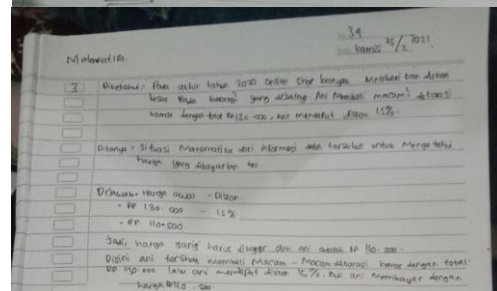 34
Kamis 25/2 2021
Matematika.
3 Diketahui: Pada akhir tahun 2020 online shop banyak memberikan diskon
besar pada barang² yang dijual. Ani membeli macam² dekorasi
kamar dengan total Rp 130.000, Ani mendapat diskon 15%.
Ditanya = Situasi matematika dari informasi data tersebut untuk mengetahui
harga yang dibayarkan Ani.
Dijawab = Harga awal - Diskon
= RP 130.000 - 15%
= RP 110.500
Jadi, harga yang harus dibayar oleh ani adalah RP 110.500.
Disini ani membeli macam - macam dekorasi kamar dengan total
RP. 130.000 lalu ani mendapat diskon 15%, ani membayar dengan
harga RP 110.500